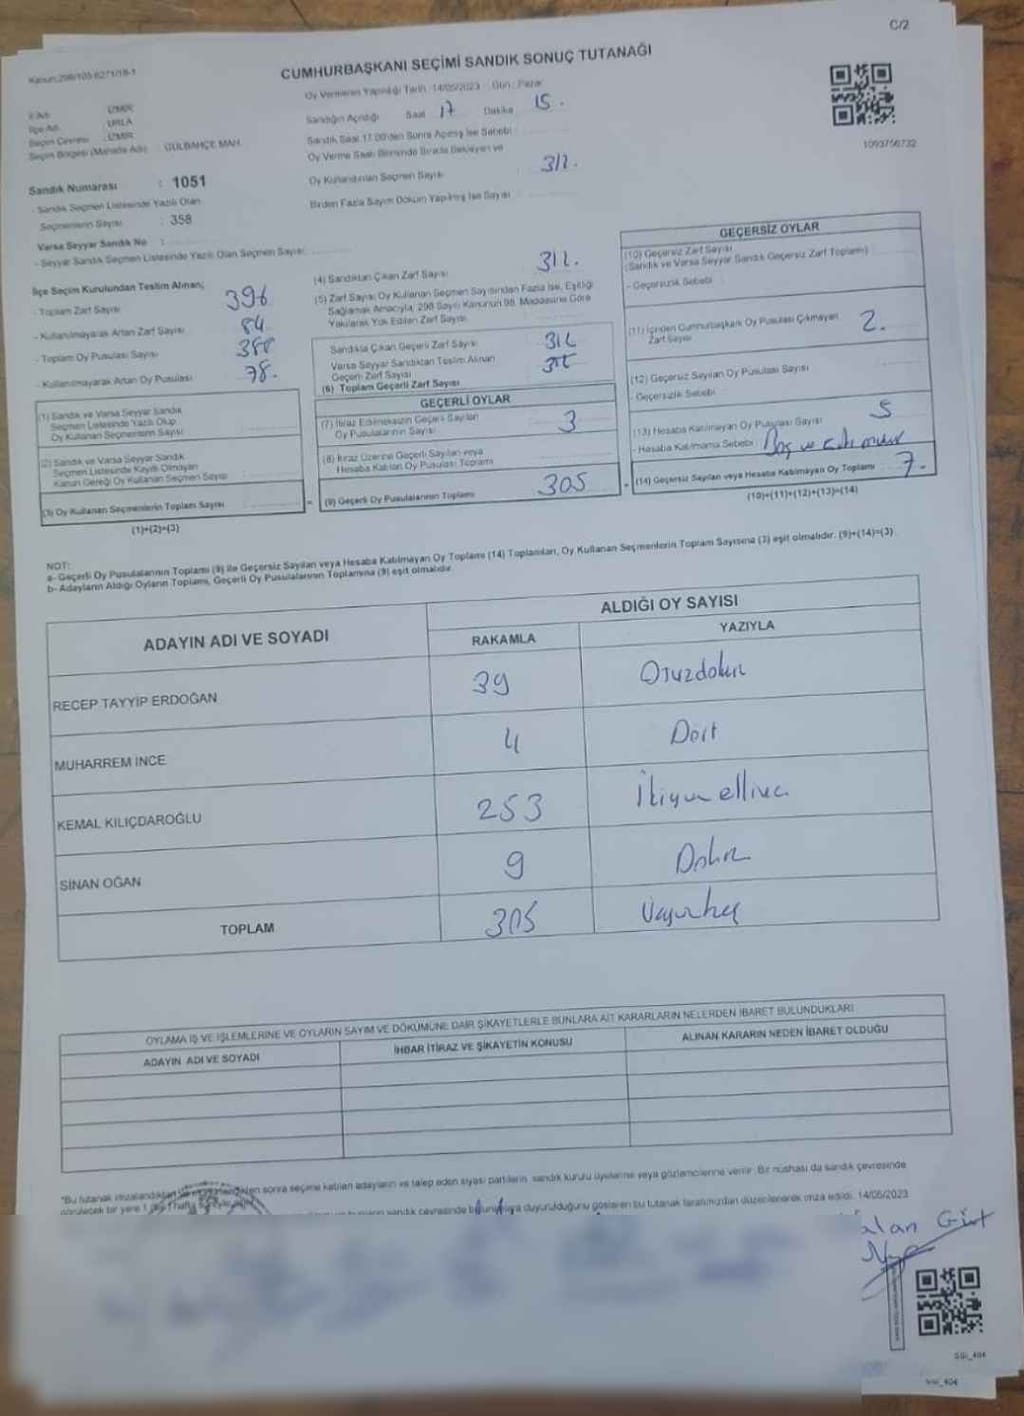 C/2
Kanun:298/105 6271/18-1
CUMHURBAŞKANI SEÇİMİ SANDIK SONUÇ TUTANAĞI
Oy Vermenin Yapıldığı Tarih : 14/05/2023 Gün : Pazar
İl Adı : İZMİR
İlçe Adı : URLA
Seçim Çevresi : İZMİR
Seçim Bölgesi (Mahalle Adı) : GÜLBAHÇE MAH.
Sandığın Açıldığı Saat 17 Dakika 15.
Sandık Saat 17.00'den Sonra Açılmış İse Sebebi :
Oy Verme Saati Bitiminde Sırada Bekleyen ve
Oy Kullandırılan Seçmen Sayısı : 312.
Birden Fazla Sayım Döküm Yapılmış İse Sayısı
1093756732
Sandık Numarası : 1051
- Sandık Seçmen Listesinde Yazılı Olan
Seçmenlerin Sayısı : 358
Varsa Seyyar Sandık No :
- Seyyar Sandık Seçmen Listesinde Yazılı Olan Seçmen Sayısı:
İlçe Seçim Kurulundan Teslim Alınan;
- Toplam Zarf Sayısı 396
- Kullanılmayarak Artan Zarf Sayısı 84
- Toplam Oy Pusulası Sayısı
- Kullanılmayarak Artan Oy Pusulası 78.
(1) Sandık ve Varsa Seyyar Sandık
Seçmen Listesinde Yazılı Olup
Oy Kullanan Seçmenlerin Sayısı
(2) Sandık ve Varsa Seyyar Sandık
Seçmen Listesinde Kayıtlı Olmayan
Kanun Gereği Oy Kullanan Seçmen Sayısı
(3) Oy Kullanan Seçmenlerin Toplam Sayısı
(1)+(2)=(3)
(4) Sandıktan Çıkan Zarf Sayısı 312.
(5) Zarf Sayısı Oy Kullanan Seçmen Sayısından Fazla İse, Eşitliği
Sağlamak Amacıyla, 298 Sayılı Kanunun 98. Maddesine Göre
Yakılarak Yok Edilen Zarf Sayısı
Sandıkta Çıkan Geçerli Zarf Sayısı 312
Varsa Seyyar Sandıktan Teslim Alınan
Geçerli Zarf Sayısı
(6) Toplam Geçerli Zarf Sayısı
GEÇERLİ OYLAR
(7) İtiraz Edilmeksizin Geçerli Sayılan
Oy Pusulalarının Sayısı 3
(8) İtiraz Üzerine Geçerli Sayılan veya
Hesaba Katılan Oy Pusulası Toplamı
(9) Geçerli Oy Pusulalarının Toplamı 305
GEÇERSİZ OYLAR
(10) Geçersiz Zarf Sayısı
(Sandık ve Varsa Seyyar Sandık Geçersiz Zarf Toplamı)
- Geçersizlik Sebebi
(11) İçinden Cumhurbaşkanı Oy Pusulası Çıkmayan
Zarf Sayısı 2.
(12) Geçersiz Sayılan Oy Pusulası Sayısı
- Geçersizlik Sebebi
(13) Hesaba Katılmayan Oy Pusulası Sayısı 5
- Hesaba Katılmama Sebebi : Boş
(14) Geçersiz Sayılan veya Hesaba Katılmayan Oy Toplamı 7.
(10)+(11)+(12)+(13)=(14)
NOT:
a- Geçerli Oy Pusulalarının Toplamı (9) ile Geçersiz Sayılan veya Hesaba Katılmayan Oy Toplamı (14) Toplamları, Oy Kullanan Seçmenlerin Toplam Sayısına (3) eşit olmalıdır. (9)+(14)=(3)
b- Adayların Aldığı Oyların Toplamı, Geçerli Oy Pusulalarının Toplamına (9) eşit olmalıdır.
ADAYIN ADI VE SOYADI
ALDIĞI OY SAYISI
RAKAMLA YAZIYLA
RECEP TAYYİP ERDOĞAN 39 Otuzdokuz
MUHARREM İNCE 4 Dört
KEMAL KILIÇDAROĞLU 253 İkiyüzelliüç
SİNAN OĞAN 9 Dokuz
TOPLAM 305 Üçyüzbeş
OYLAMA İŞ VE İŞLEMLERİNE VE OYLARIN SAYIM VE DÖKÜMÜNE DAİR ŞİKAYETLERLE BUNLARA AİT KARARLARIN NELERDEN İBARET BULUNDUKLARI
ADAYIN ADI VE SOYADI İHBAR İTİRAZ VE ŞİKAYETİN KONUSU ALINAN KARARIN NEDEN İBARET OLDUĞU
*Bu tutanak imzalandıktan sonra seçime katılan adayların ve talep eden siyasi partilerin, sandık kurulu üyelerine veya gözlemcilerine verilir. Bir nüshası da sandık çevresinde
görülecek bir yere 1 hafta sandık çevresinde duyurulduğunu gösteren bu tutanak tarafımızdan düzenlenerek imza edildi. 14/05/2023
SGI_404